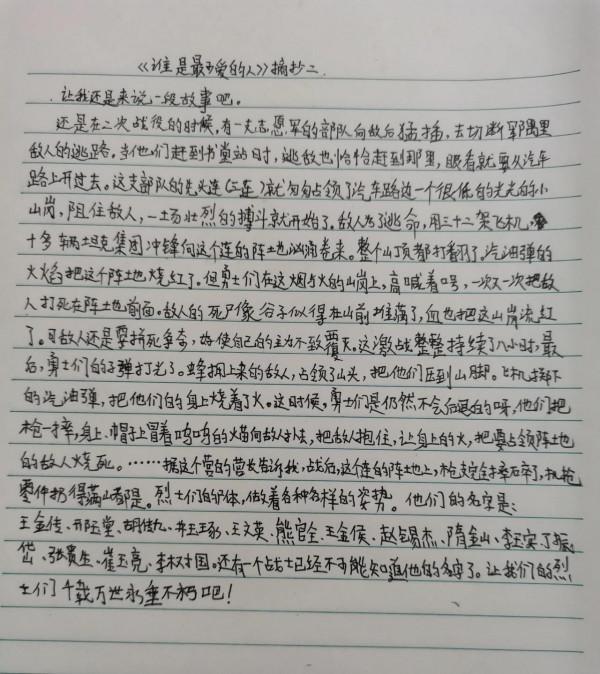 《谁是最可爱的人》摘抄二
让我还是来说一段故事吧。
还是在二次战役的时候，有一支志愿军的部队向敌后猛插，去切断军隅里
敌人的逃路。当他们赶到书堂站时，逃敌也恰恰赶到那里，眼看就要从汽车
路上开过去。这支部队的先头连（三连）就匆匆占领了汽车路边一个很低的光光的小
山岗，阻住敌人，一场壮烈的搏斗就开始了。敌人为了逃命，用三十二架飞机，
十多辆坦克集团冲锋向这个连的阵地汹涌卷来。整个山顶都打翻了，汽油弹的
火焰把这个阵地烧红了。但勇士们在这烟与火的山岗上，高喊着口号，一次又一次把敌
人打死在阵地前面。敌人的死尸像谷子似得在山前堆满了，血也把这山岗流红
了。可敌人还是要拼死争夺，好使自己的主力不致覆灭。这激战整整持续了八小时，最
后，勇士们的子弹打光了。蜂拥上来的敌人，占领了山头，把他们压到山脚。飞机掷下
的汽油弹，把他们的身上烧着了火。这时候，勇士们是仍然不会后退的呀，他们把
枪一摔，身上、帽子上冒着呜呜的火苗向敌人扑去，把敌人抱住，让身上的火，把要占领阵地
的敌人烧死。……据这个营的营长告诉我，战后，这个连的阵地上，枪支完全摔碎了，机枪
零件扔得满山都是。烈士们的尸体，做着各种各样的姿势。他们的名字是：
王金传、邢玉堂、胡传九、井玉琢、王文英、熊官全、王金侯、赵锡杰、隋金山、李玉安、丁振
岱、张贵生、崔玉亮、李树国。还有一个战士已经不可能知道他的名字了。让我们的烈
士们千载万世永垂不朽吧！